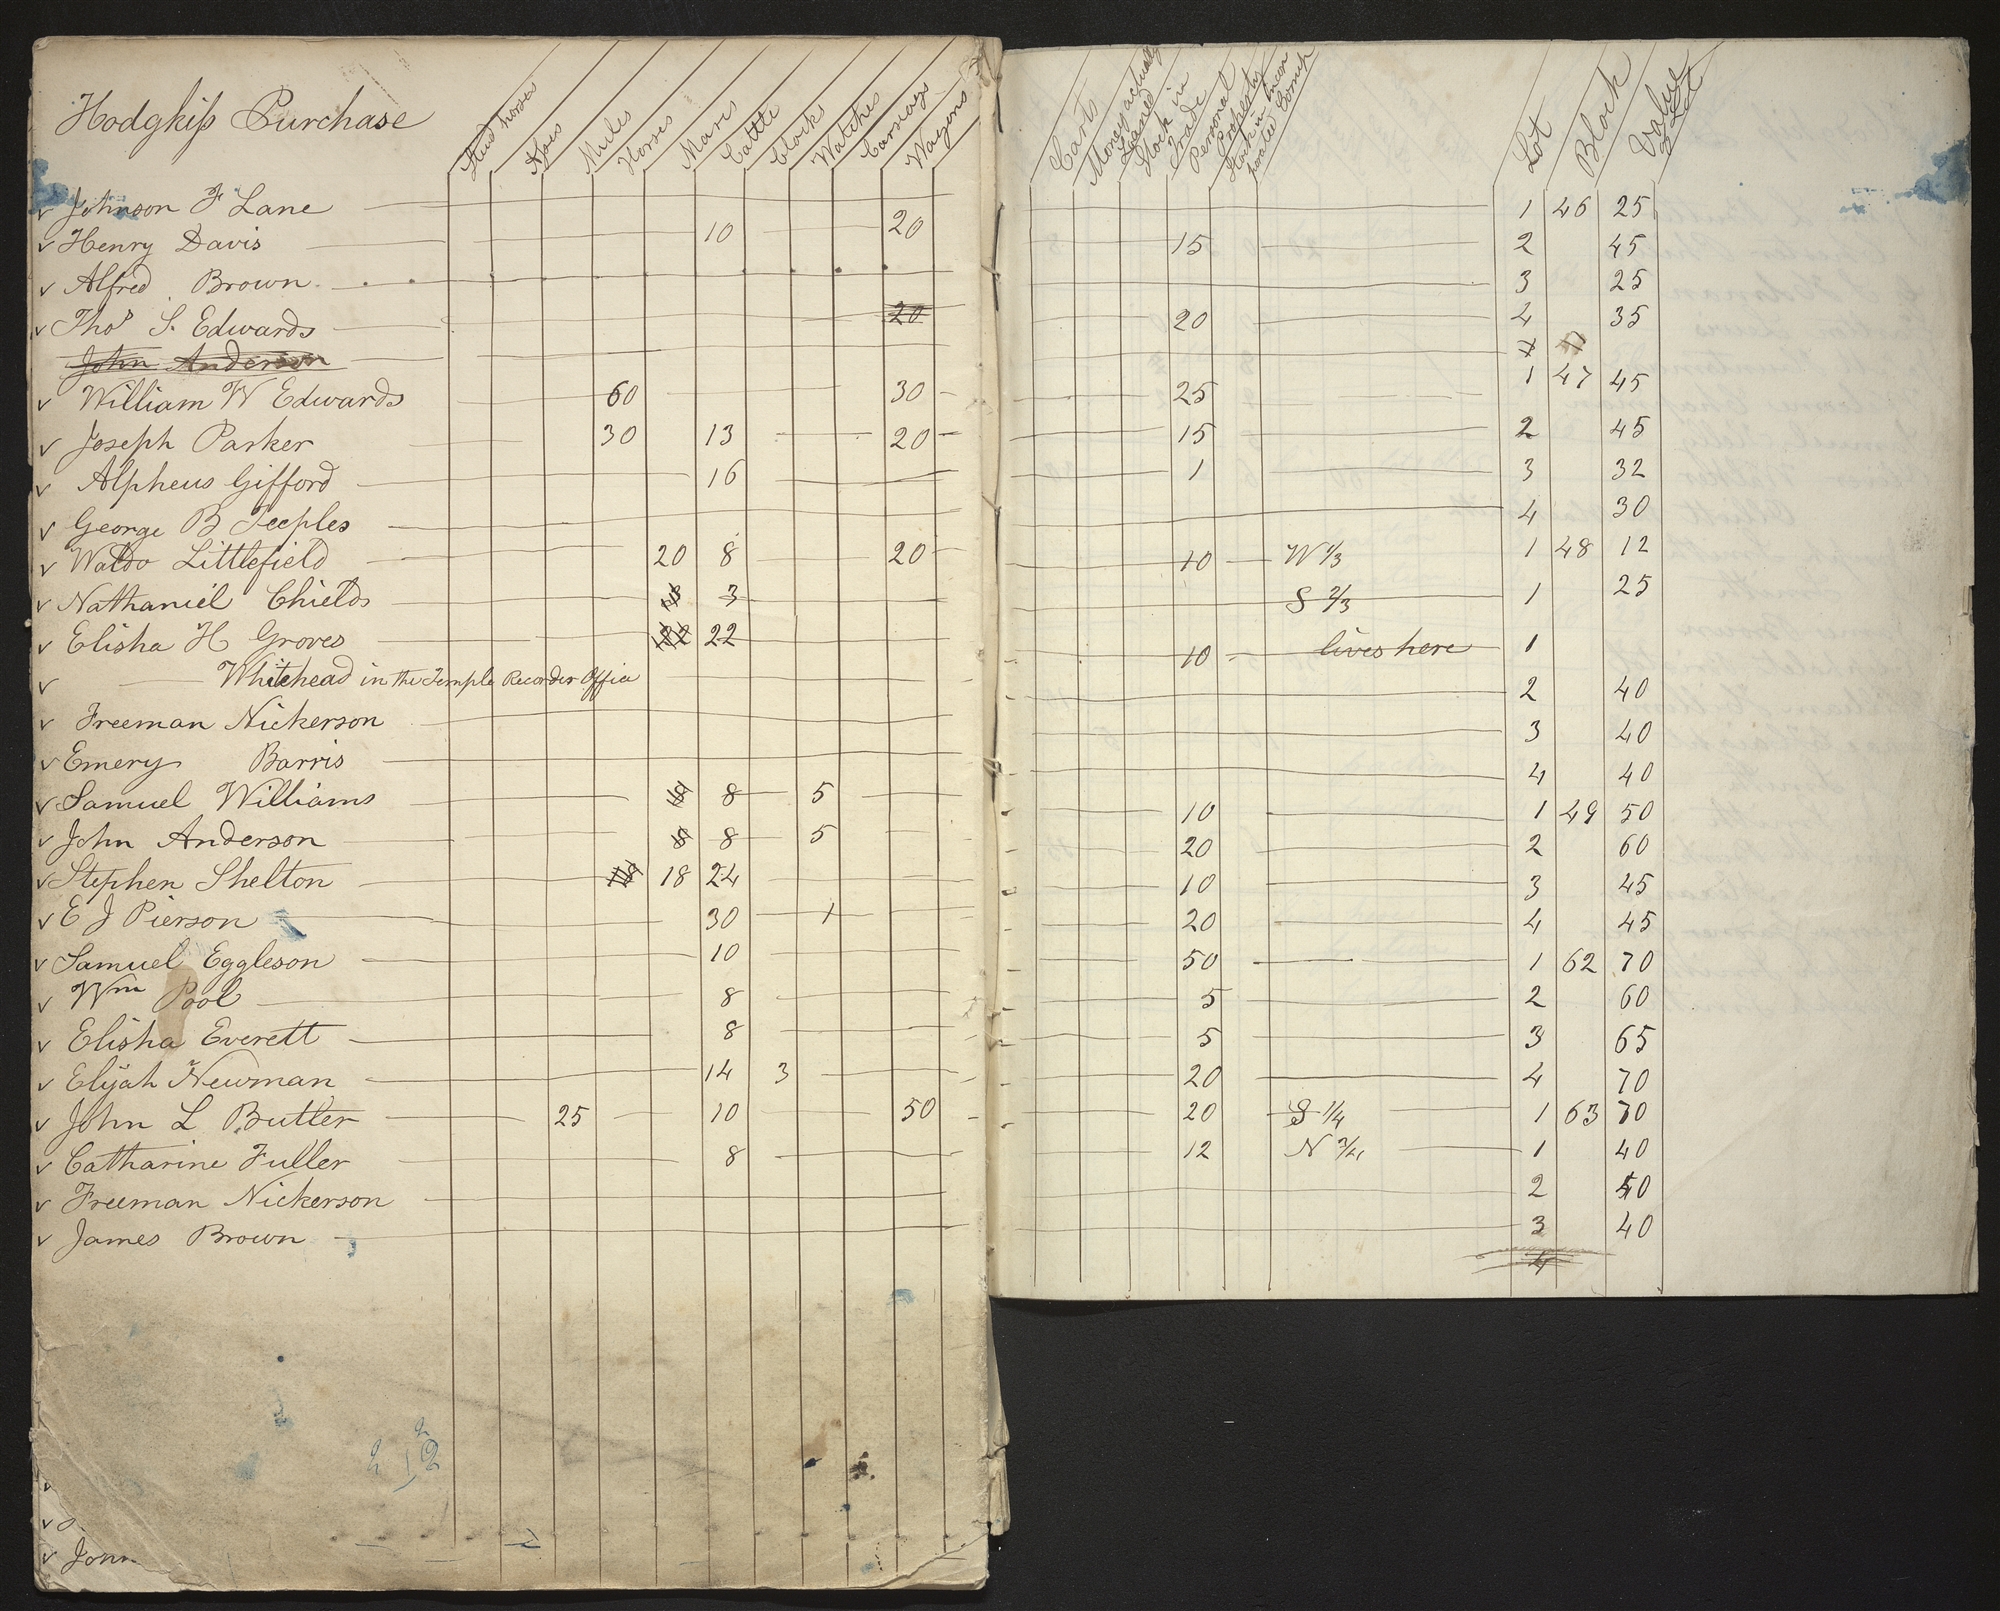 Hodgkiß Purchase
Stud horses Asses Mules Horses Mares Cattle Clocks Watches Carriages Wagons
Carts Money actually Loaned Stock in Trade Personal Property Stock in Incorporated Comp Lot Block Value of Lot
v Johnson F Lane 1 46 25
v Henry Davis 10 20 15 2 45
v Alfred Brown 3 25
v Thos S. Edwards 20 20 4 35
John Anderson
v William W Edwards 60 30 25 1 47 45
v Joseph Parker 30 13 20 15 2 45
v Alpheus Gifford 16 1 3 32
v George B Teeples 4 30
v Waldo Littlefield 20 8 20 10 W 1/3 1 48 12
v Nathaniel Chields 3 S 2/3 1 25
v Elisha H Groves 22 10 lives here 1
v Whitehead in the Temple Recorder Office 2 40
v Freeman Nickerson 3 40
v Emery Barris 4 40
v Samuel Williams 8 5 10 1 49 50
v John Anderson 8 8 5 20 2 60
v Stephen Shelton 18 24 10 3 45
v E J Pierson 30 1 20 4 45
v Samuel Eggleson 10 50 1 62 70
v Wm Pool 8 5 2 60
v Elisha Everett 8 5 3 65
v Elijah Newman 14 3 20 4 70
v John L Butler 25 10 50 20 S 1/4 1 63 70
v Catharine Fuller 8 12 N 3/4 1 40
v Freeman Nickerson 2 50
v James Brown 3 40
4